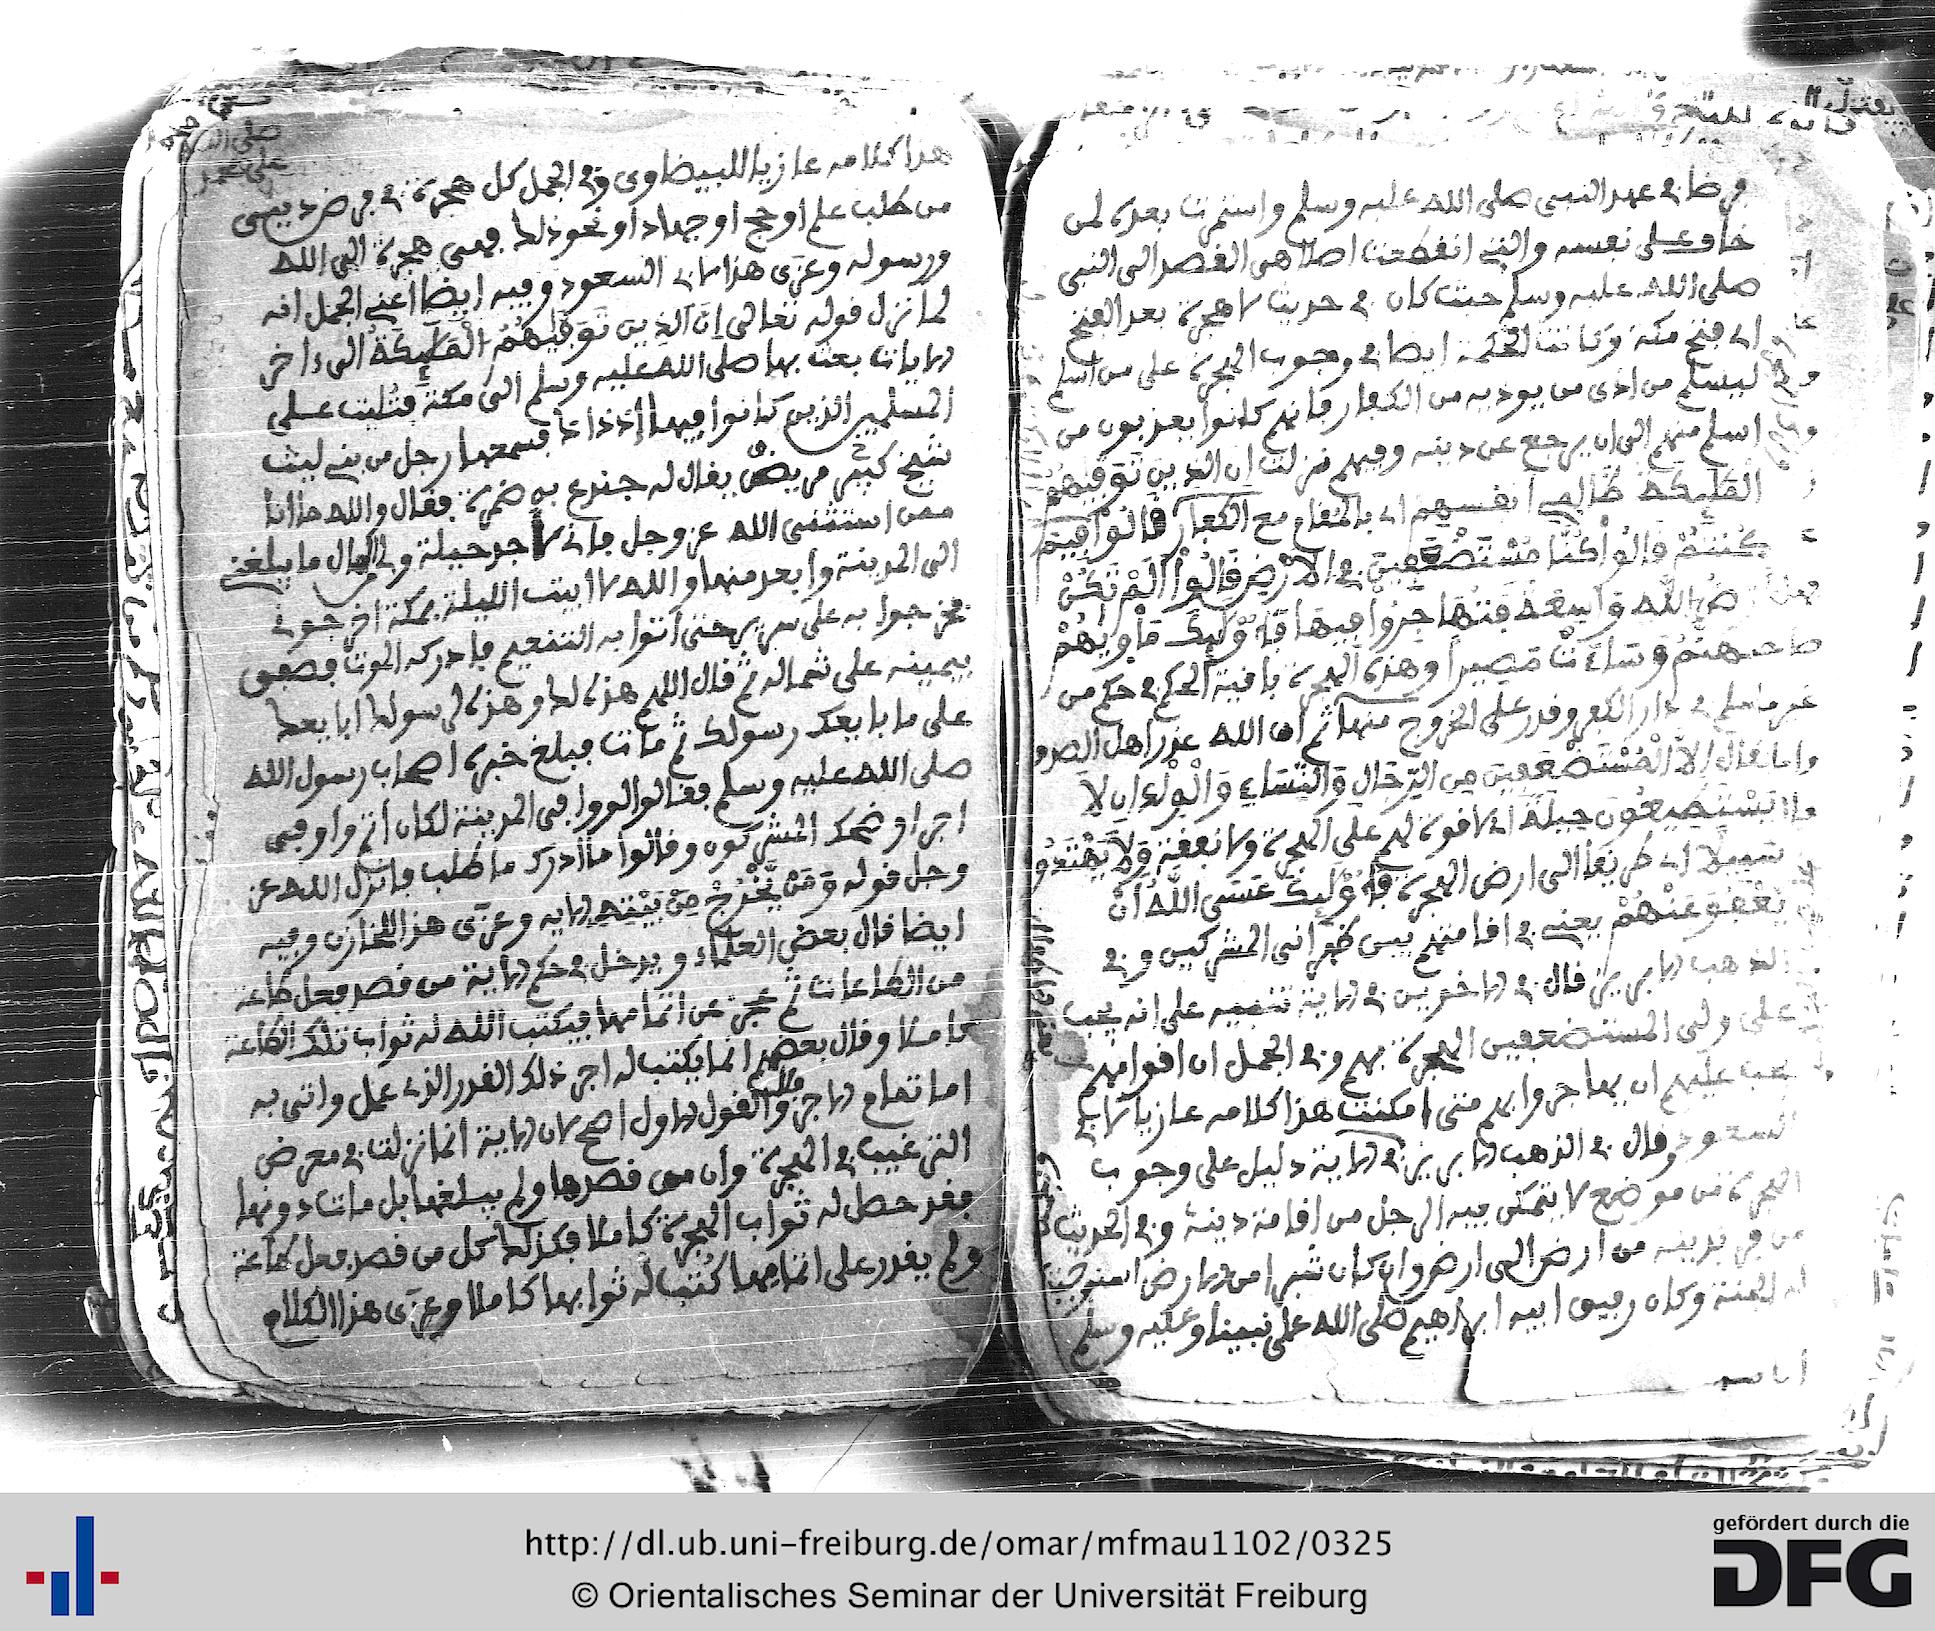 فرضا في عهد النبي صلى الله عليه وسلم واستمرت بعده لمن
خاف على نفسه والتي انقطعت اصلا هي القصد الى النبي
صلى الله عليه وسلم حيث كان في حديث لا هجرة بعد الفتح
اي فتح مكة وكانت الحكمة ايضا في وجوب الهجرة على من اسلم
ليسلم من اذى من يوذيه من الكفار فانهم كانوا يعذبون من
اسلم منهم الى ان يرجع عن دينه وفيهم نزلت ان الذين توفيهم
الملئكة ظالمي انفسهم اي بالمقام مع الكفار قالوا فيم
كنتم قالوا كنا مستضعفين في الارض قالوا الم تكن
ارض الله واسعة فتهاجروا فيها فاولئك ماويهم
جهنم وساءت مصيرا وهذه الهجرة باقية الحكم في حكم من
اسلم في دار الكفر وقدر على الخروج منها ثم ان الله عذر اهل الصدق
فقال الا المستضعفين من الرجال والنساء والولدان لا
يستطيعون حيلة اي لا قوة لهم على الهجرة ولا نفقة ولا يهتدون
سبيلا اي طريقا الى ارض الهجرة فاولئك عسى الله ان
يعفو عنهم يعني في اقامتهم بين ظهراني المشركين وفي
الذهب الابريز قال في الاخرين في الاية تنبيه على انه يجب
على ولي المستضعفين الهجرة بهم وفي الجمل ان اقوامهم
يجب عليهم ان يهاجروا بهم متى امكنت هذا كلامه عازيا لابي
السعود وقال في الذهب الابريز في الاية دليل على وجوب
الهجرة من موضع لا يتمكن فيه الرجل من اقامة دينه وفي الحديث
من فر بدينه من ارض الى ارض وان كان شبرا من الارض استوجبت
له الجنة وكان رفيق ابيه ابراهيم صلى الله على نبينا وعليه وسلم
هذا كلامه عازيا للبيضاوي وفي الجمل كل هجرة في غرض ديني
من طلب علم او حج او جهاد او نحو ذلك فهي هجرة الى الله
ورسوله وعزى هذا لابي السعود وفيه ايضا اعني الجمل انه
لما نزل قوله تعالى إن الذين توفيهم الملئكة الى ءاخر
الايات بعث بها صلى الله عليه وسلم الى مكة فتليت على
المسلمين الذين كانوا فيها إذ ذاك فسمعها رجل من بني ليث
شيخ كبير مريض يقال له جندع بن ضمرة فقال والله ما انا
ممن استثنى الله عز وجل فاني لأجد حيلة ولي من المال ما يبلغني
الى المدينة وأبعد منها والله لا أبيت الليلة بمكة اخرجوني
فخرجوا به على سرير حتى أتوا به التنعيم فادركه الموت فصفق
بيمينه على شماله ثم قال اللهم هذه لك وهذه لرسولك ابايعك
على ما بايعك رسولك ثم مات فبلغ خبره اصحاب رسول الله
صلى الله عليه وسلم فقالوا لو وافى المدينة لكان أتم واوفى
اجرا وضحك المشركون وقالوا ما أدرك ما طلب فانزل الله عز
وجل قوله ومن يخرج من بيته الاية وعزى هذا للخازن وفيه
ايضا قال بعض العلماء ويدخل في حكم الاية من قصد فعل طاعة
من الطاعات ثم عجز عن اتمامها فيكتب الله له ثواب تلك الطاعة
كاملا وقال بعضهم انما يكتب له اجر ذلك القدر الذي عمل واتى به
اما تمام الاجر فلا والقول الاول اصح لان الاية انما نزلت في معرض
الترغيب في الهجرة وأن من قصدها ولم يبلغها بل مات دونها
فقد حصل له ثواب الهجرة كاملا فكذلك كل من قصد فعل طاعة
ولم يقدر على اتمامها كتب له ثوابها كاملا وعزى هذا الكلام
http://dl.ub.uni-freiburg.de/omar/mfmau1102/0325
© Orientalisches Seminar der Universität Freiburg
gefördert durch die
DFG